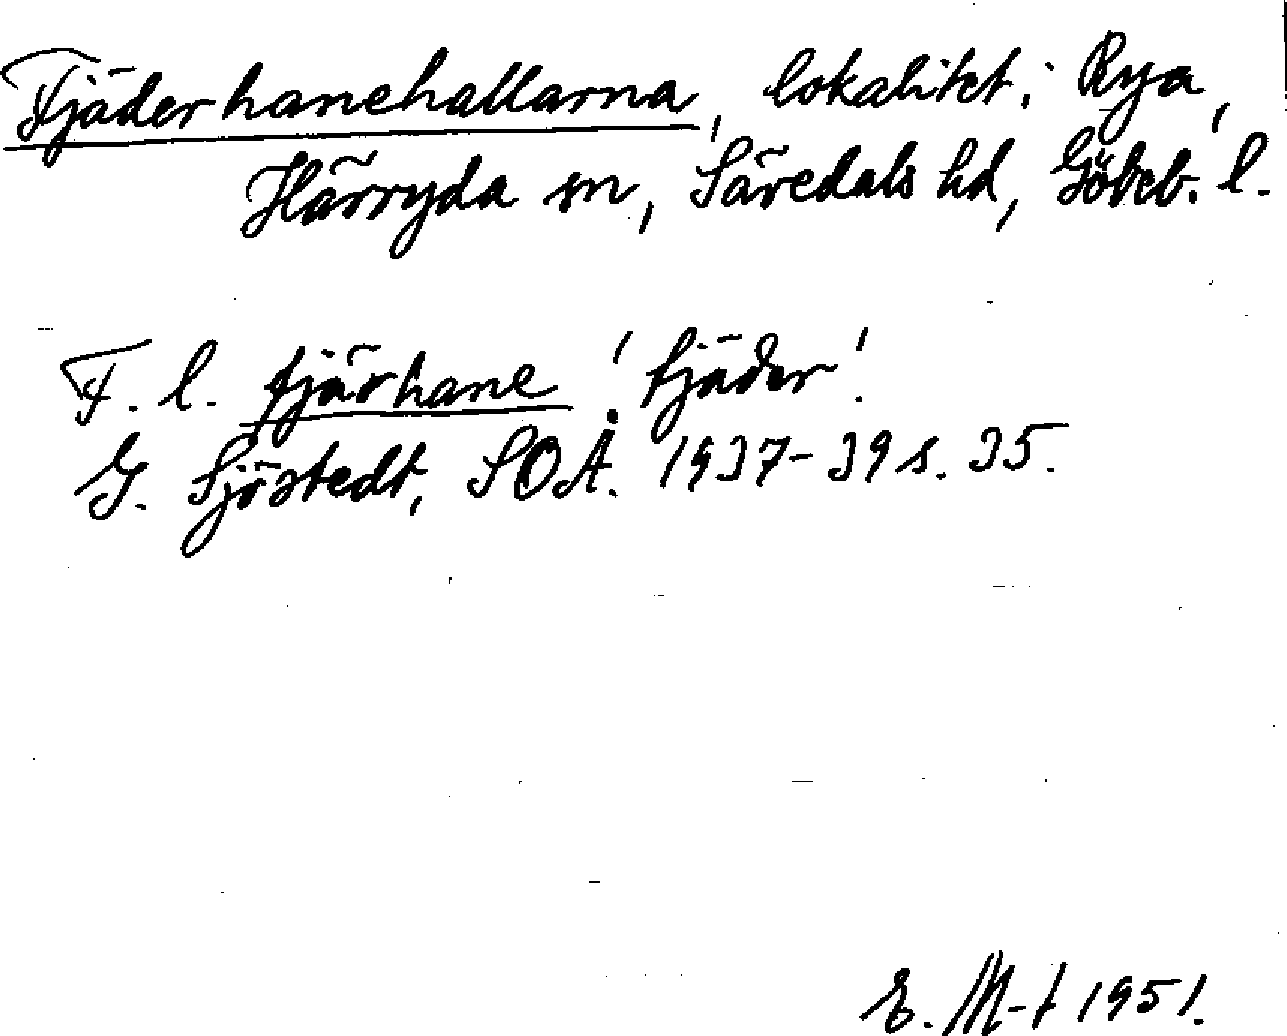 Fjäderhanehallarna, lokalitet i Rya,
Härryda sn, Sävedals hd, Göteb. l.
F. l. fjärhane 'fjäder'.
G. Sjöstedt, SOÅ. 1937-39 s. 35.
E. M-t 1951.